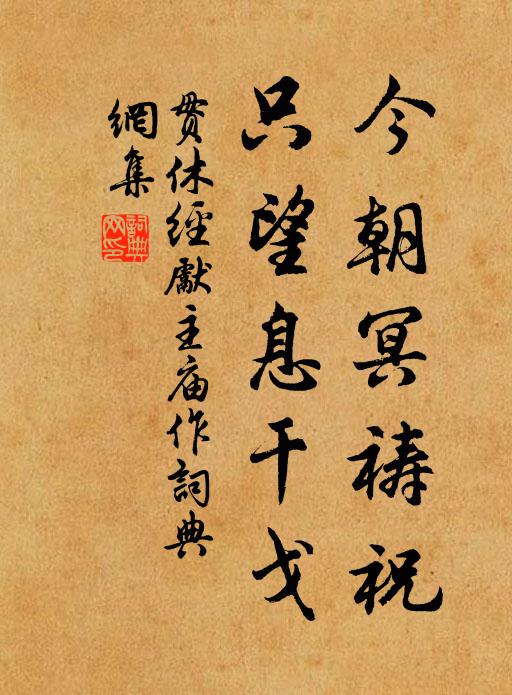 今朝冥祷祝
只望息干戈
贯休經獻主庙作詞典
網集
詞典
网印